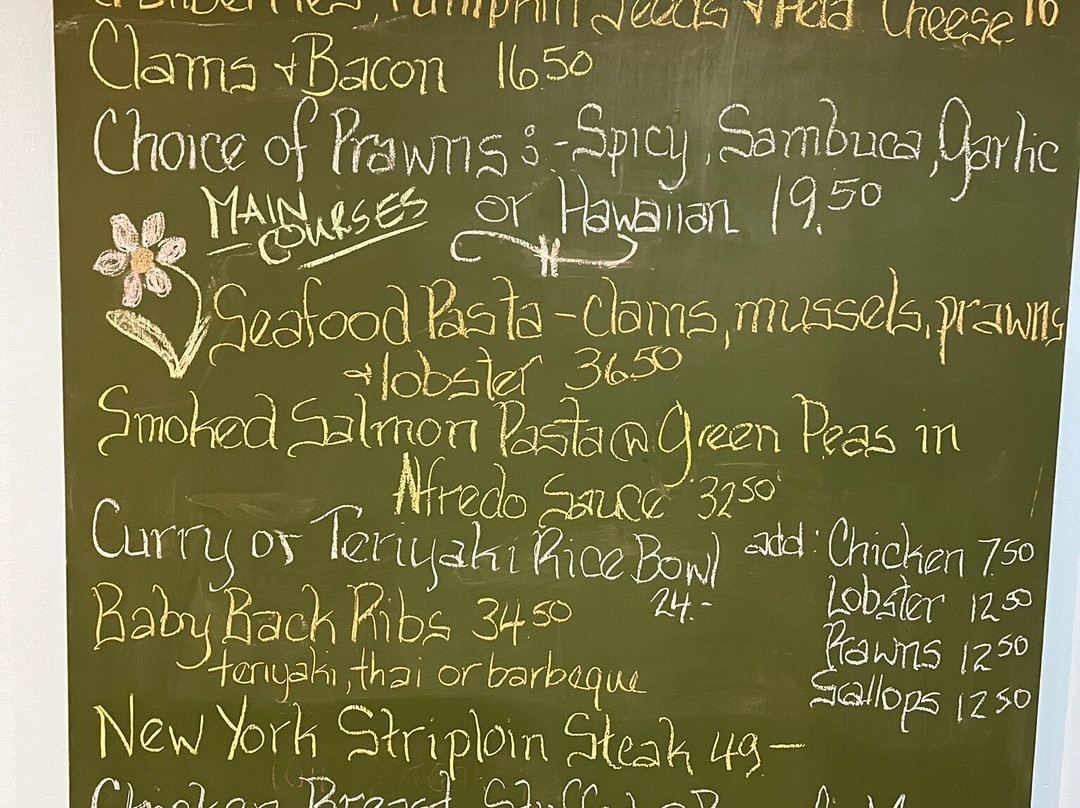 Pumpkin Seeds & Feta Cheese 16
Clams & Bacon 16.50
Choice of Prawns : - Spicy, Sambuca, Garlic
or Hawaiian 19.50
MAIN COURSES
Seafood Pasta - clams, mussels, prawns
& lobster 36.50
Smoked Salmon Pasta w Green Peas in
Alfredo Sauce 32.50
Curry or Teriyaki Rice Bowl 24.-
add: Chicken 7.50
Lobster 12.50
Prawns 12.50
Scallops 12.50
Baby Back Ribs 34.50
teriyaki, thai or barbeque
New York Striploin Steak 49-
Chicken Breast